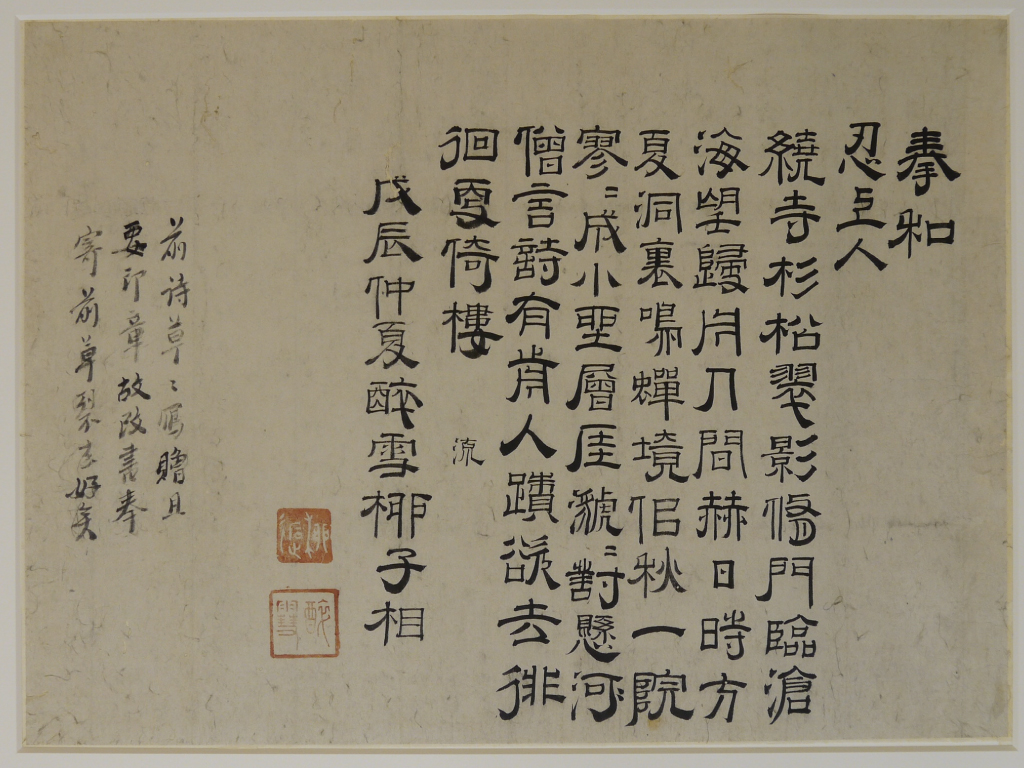 奉和
忍上人
繞寺杉松翠影脩門臨滄
海朢歸舟人間赫日時方
夏洞裏鳴蟬境佀秋一院
寥〻成小聖層厓〻對懸河
僧言詩有前人蹟欲去徘
徊更倚樓 流
戊辰仲夏醉雪栁子相
前诗草〻寫贈且
要印章故改書奉
寄前草裂去好矣
醉雪